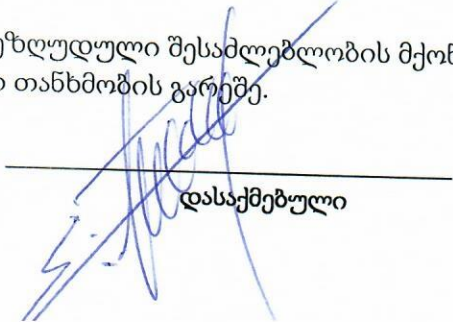 ეზღუდული შესაძლებლობის მქონ
თანხმობის გარეშე.
დასაქმებული